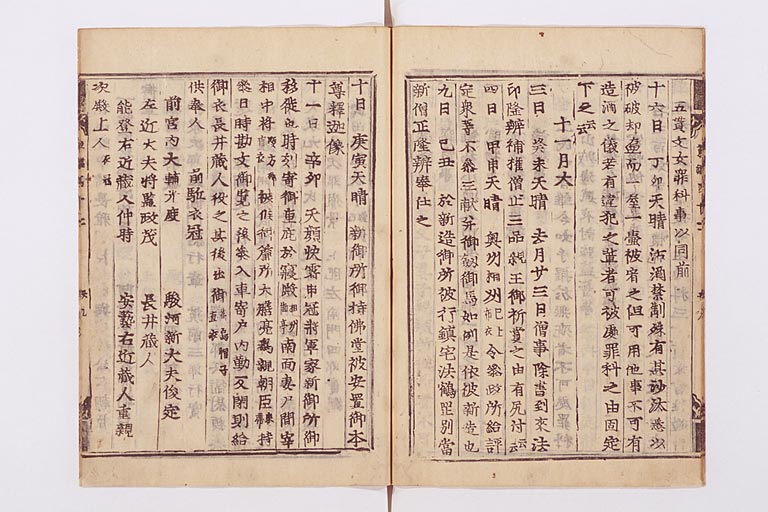 五貫文女罪科事以同前
十六日 丁卯天晴 沽酒禁制殊有其沙汰悉以
被破却壺而一屋一壺被宥之但可用他事不可有
造酒之儀若有違犯之輩者可被處罪科之由固定
下之云云
十一月大
三日 癸未天晴 去月廿三日僧事除書到來法
印隆辨補權僧正三品親王御祈賞之由有尻付云云
四日 甲申天晴 奥州相州已上令參政所給評
定衆等不參三献
九日 己丑 於新造御所被行鎮宅法鶴岡別當
新僧正隆辨奉仕之
十日 庚寅天晴 新御所御持佛堂被安置御本
尊釋迦像
十一日 辛卯 天顔快霽申冠將軍家新御所御
移徙也時剋寄御車 南面妻戸間宰
相中將 被候御簾 朝臣 持
參日時勘文御覽之後參入車寄戸内勤反閇則給
御衣長井藏人役之其後出御
供奉人 前駈衣冠
前宮内大輔 駿河新大夫俊定
左近大夫將監政茂 長井藏人
能登右近藏人仲時 安藝右近藏人重親
次殿上人